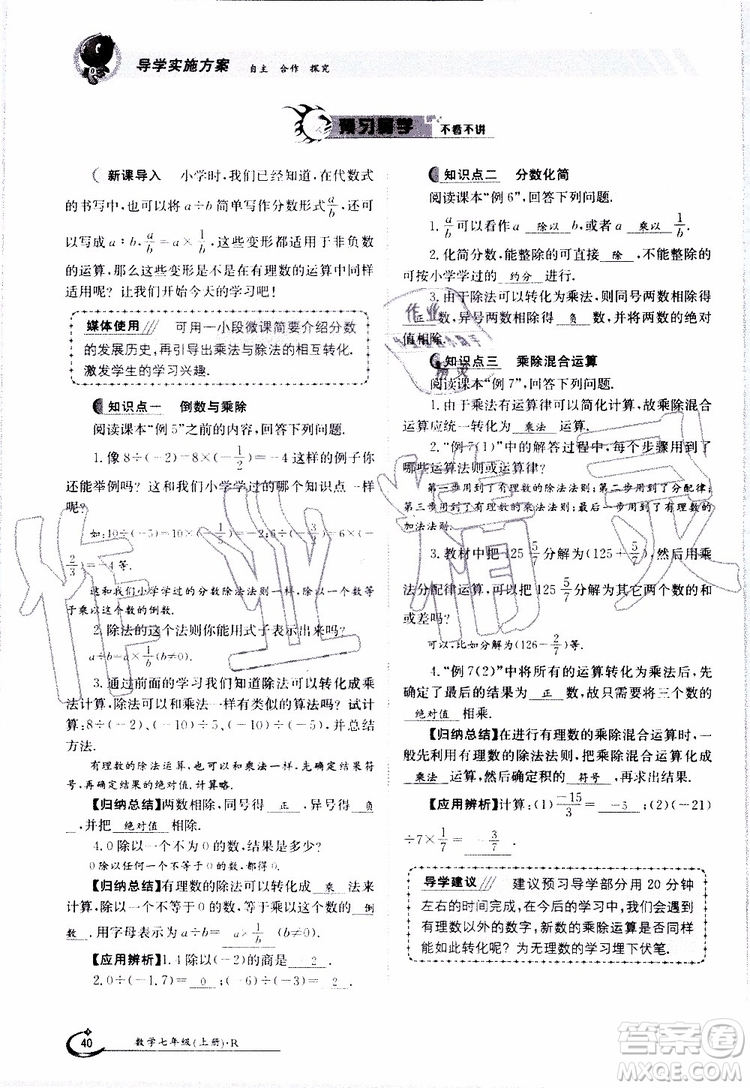 导学实施方案 自主 合作 探究
预习导学 不看不讲
新课导入 小学时,我们已经知道,在代数式
的书写中,可以将 a÷b 简单写作分数形式 a/b,还可
以写成 a∶b, a/b=a×1/b,这些变形都是对于非负数
的运算,那么这些变形是不是在有理数的运算中同样适
用呢?让我们开始今天的学习吧!
媒体使用 可用一小段微课简要介绍分数
的发展历史,再引导出乘法与除法的相互转化.
激发学生的学习兴趣.
知识点一 倒数与乘除
阅读课本“例 5”之前的内容,回答下列问题.
1.像 8÷(-2)=8×(-1/2)=-4 这样的例子你
还能举例吗?这和我们小学学过的什么知识点一样
呢?
如:10÷(-5)=10×(-1/5)=-2;6÷(-3/2)=6×
(-2/3)=-4 等.
这和我们小学学过的分数除法法则一样,除以一个数等
于乘以这个数的倒数.
2.除法的这个法则你能用式子表示出来吗?
a÷b=a·1/b(b≠0).
3.通过前面的学习我们知道除法可以转化成乘
法,那么有理数除法也有和乘法类似的算法吗?试计
算:8÷(-2),(-10)÷5,(-10)÷(-5),并总结
方法.
有理数的除法运算,也可以和乘法一样,先确定结果符
号,再求出结果的绝对值.
【归纳总结】两数相除,同号得 正 ,异号得 负
,并把 绝对值 相除.
4.0 除以一个不为 0 的数,结果是多少?
0 除以任何一个不等于 0 的数,都得 0.
【归纳总结】有理数的除法可以转化为 乘 法来
计算.除以一个不等于 0 的数,等于乘以这个数的 倒
数 .用字母表示为 a÷b=a·1/b(b≠0) .
【应用辨析】1.4 除以(-2)的商是 -2 .
2.0÷(-1.7)= 0 ,(-6)÷(-3)= 2 .
知识点二 分数化简
阅读课本“例 6”,回答下列问题.
1.a/b可以看作 a 除以 b,也可以看作 a 乘以 1/b.
2.化简分数,能整除的可直接 除 ,不能整除的可
按小学学过的 约分 进行.
3.由于除法可以转化为乘法,则同号两数相除得
正 数,异号两数相除得 负 数,并把两数的绝对
值相除.
知识点三 乘除混合运算
阅读课本“例 7”,回答下列问题.
1.由于乘法有运算律可以简化计算,故乘除混合
运算应统一转化为 乘法 运算.
2.“例 7(1)”中的解答过程中,每个步骤用到了
哪些运算法则或运算律?
第一步用到了有理数的除法法则;第二步用到了分配律;
第三步用到了有理数的乘法法则;第四步用到了有理数的
加法法则.
3.教材中把 125 5/7 分解为(125+5/7),再运用乘
法分配律运算,可以把 125 5/7 分解为其它两个数的和
或差吗?
可以.比如分解为(126-2/7)等.
4.“例 7(2)”中将所有的运算转化为乘法,先
确定了最后的结果为 正 数,故可以将三个数的
绝对值 相乘.
【归纳总结】在进行有理数的乘除混合运算时,一
般先运用有理数的除法法则,把乘除混合运算化成
乘法 运算,然后确定积的 符号 ,最后求出结果.
【应用辨析】计算:(1)-15/3= -5 ;(2)-3
÷7×1/7= -3/49 .
导学建议 建议预习导学部分用 20 分钟
左右的时间完成,在今后的学习中,我们会遇到
有理数以外的数字,新数的乘除运算是否仍然
能如此转化?为无理数的学习埋下伏笔.
40 数学七年级(上册)·R